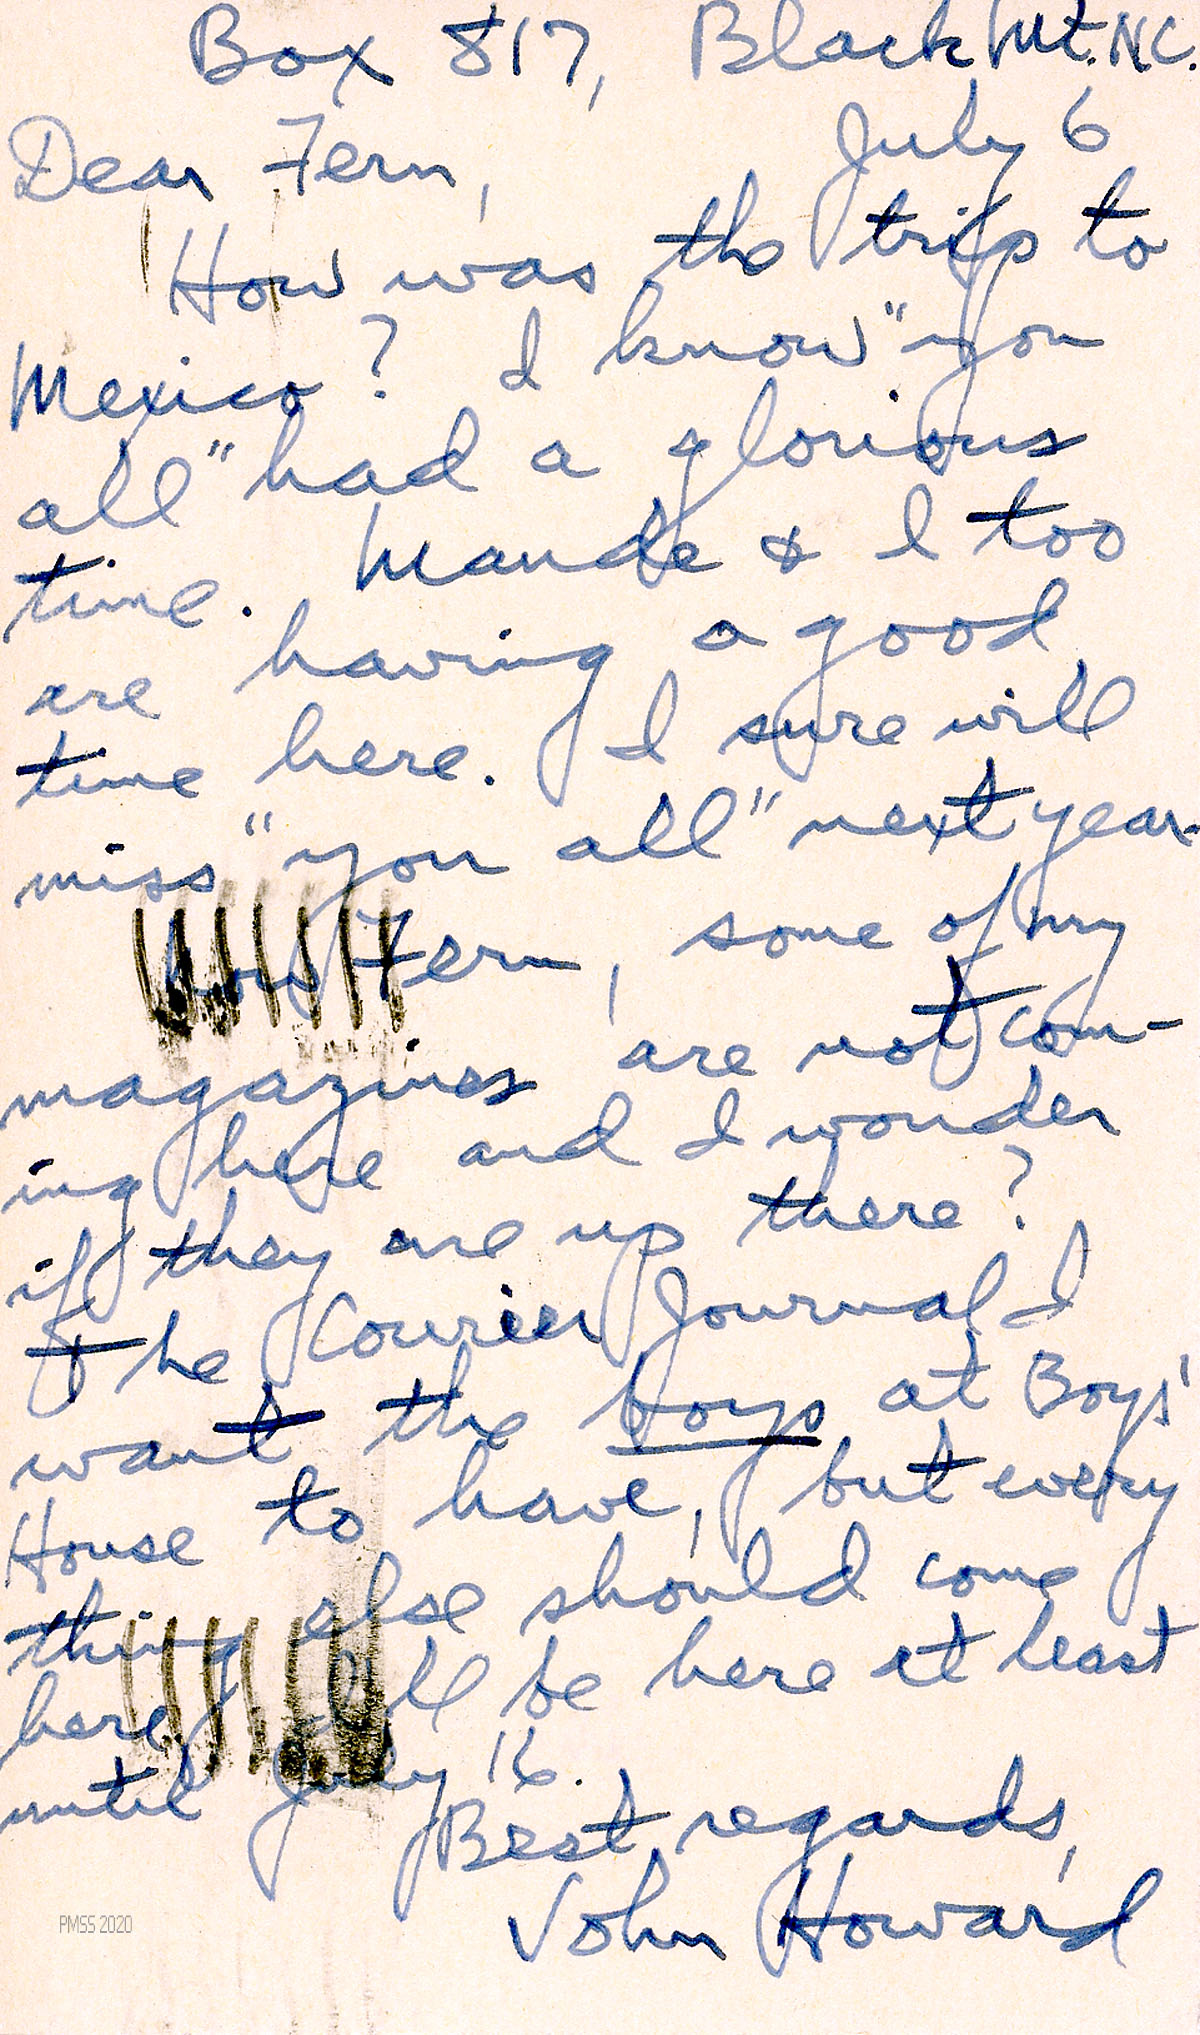 Box 817, Black Mt. N.C.
July 6
Dear Fern,
How was the trip to
Mexico? I know "you
all" had a glorious
time. Maude & I too
are having a good
time here. I sure will
miss "you all" next year.
Now Fern, some of my
magazines are not com-
ing here and I wonder
if they are up there?
The Courier Journal I
want the boys at Boys'
House to have, but every
thing else should come
here I'll be here at least
until July 16.
Best regards,
John Howard
PMSS 2020